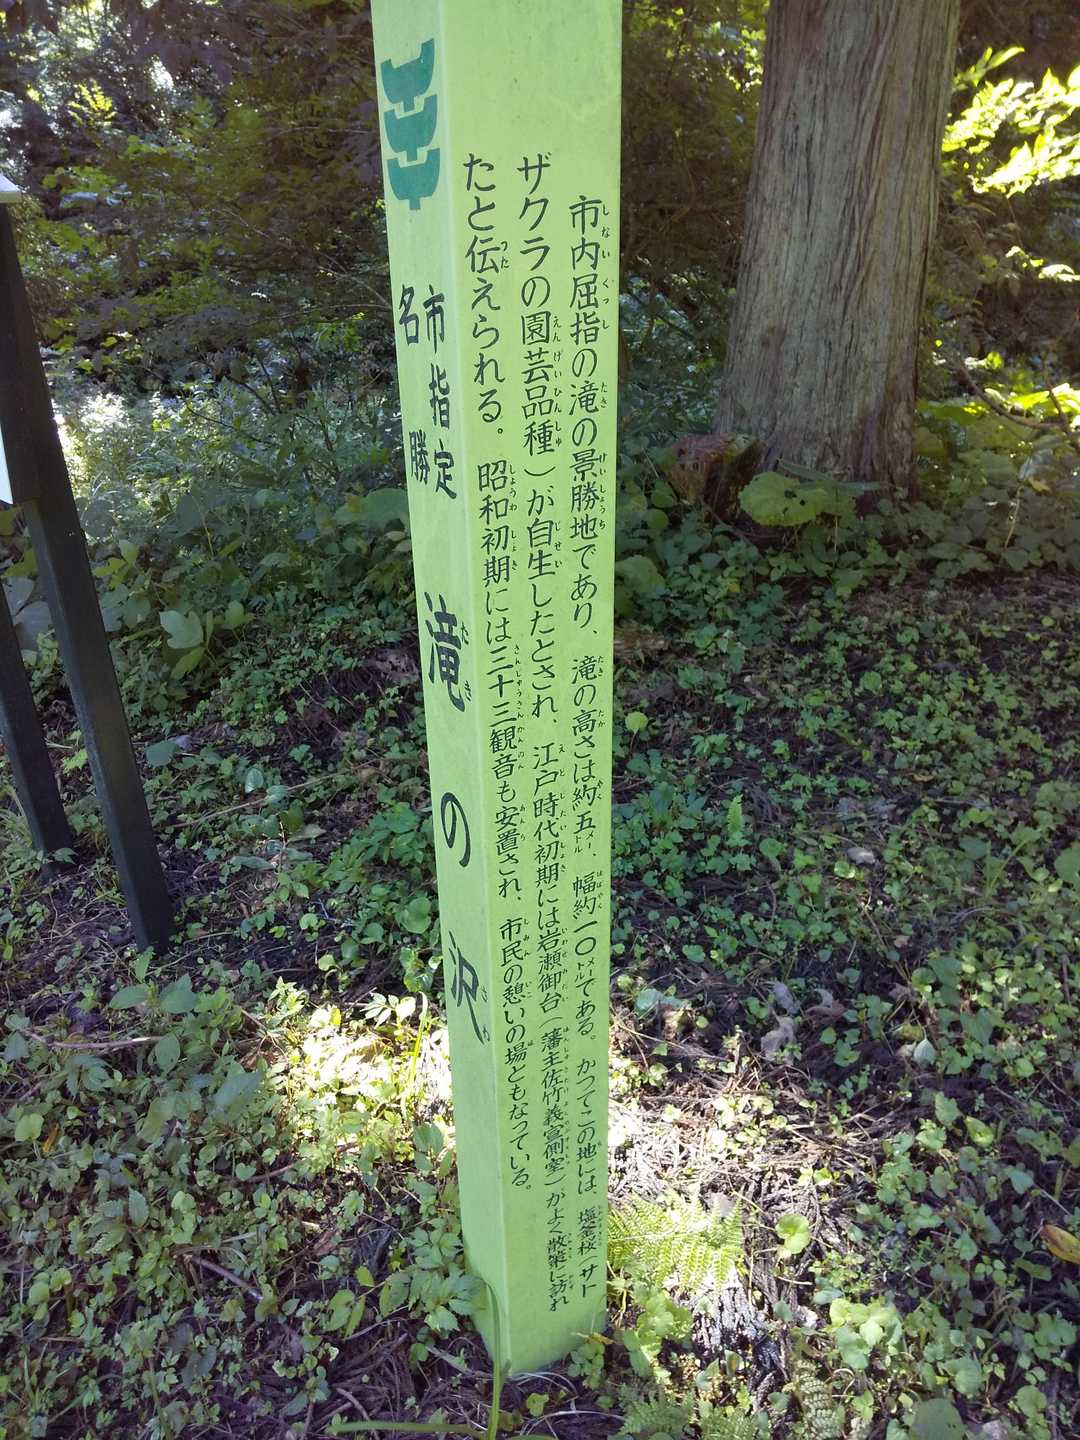 市指定
名勝
滝の沢
たき
さわ
市内屈指の滝の景勝地であり、滝の高さは約五メートル、幅約一〇メートルである。かつてこの地には、塩竃桜（サト
ザクラの園芸品種）が自生したとされ、江戸時代初期には岩瀬御台（藩主佐竹義宣側室）がよく散策に訪れ
たと伝えられる。昭和初期には三十三観音も安置され、市民の憩いの場ともなっている。